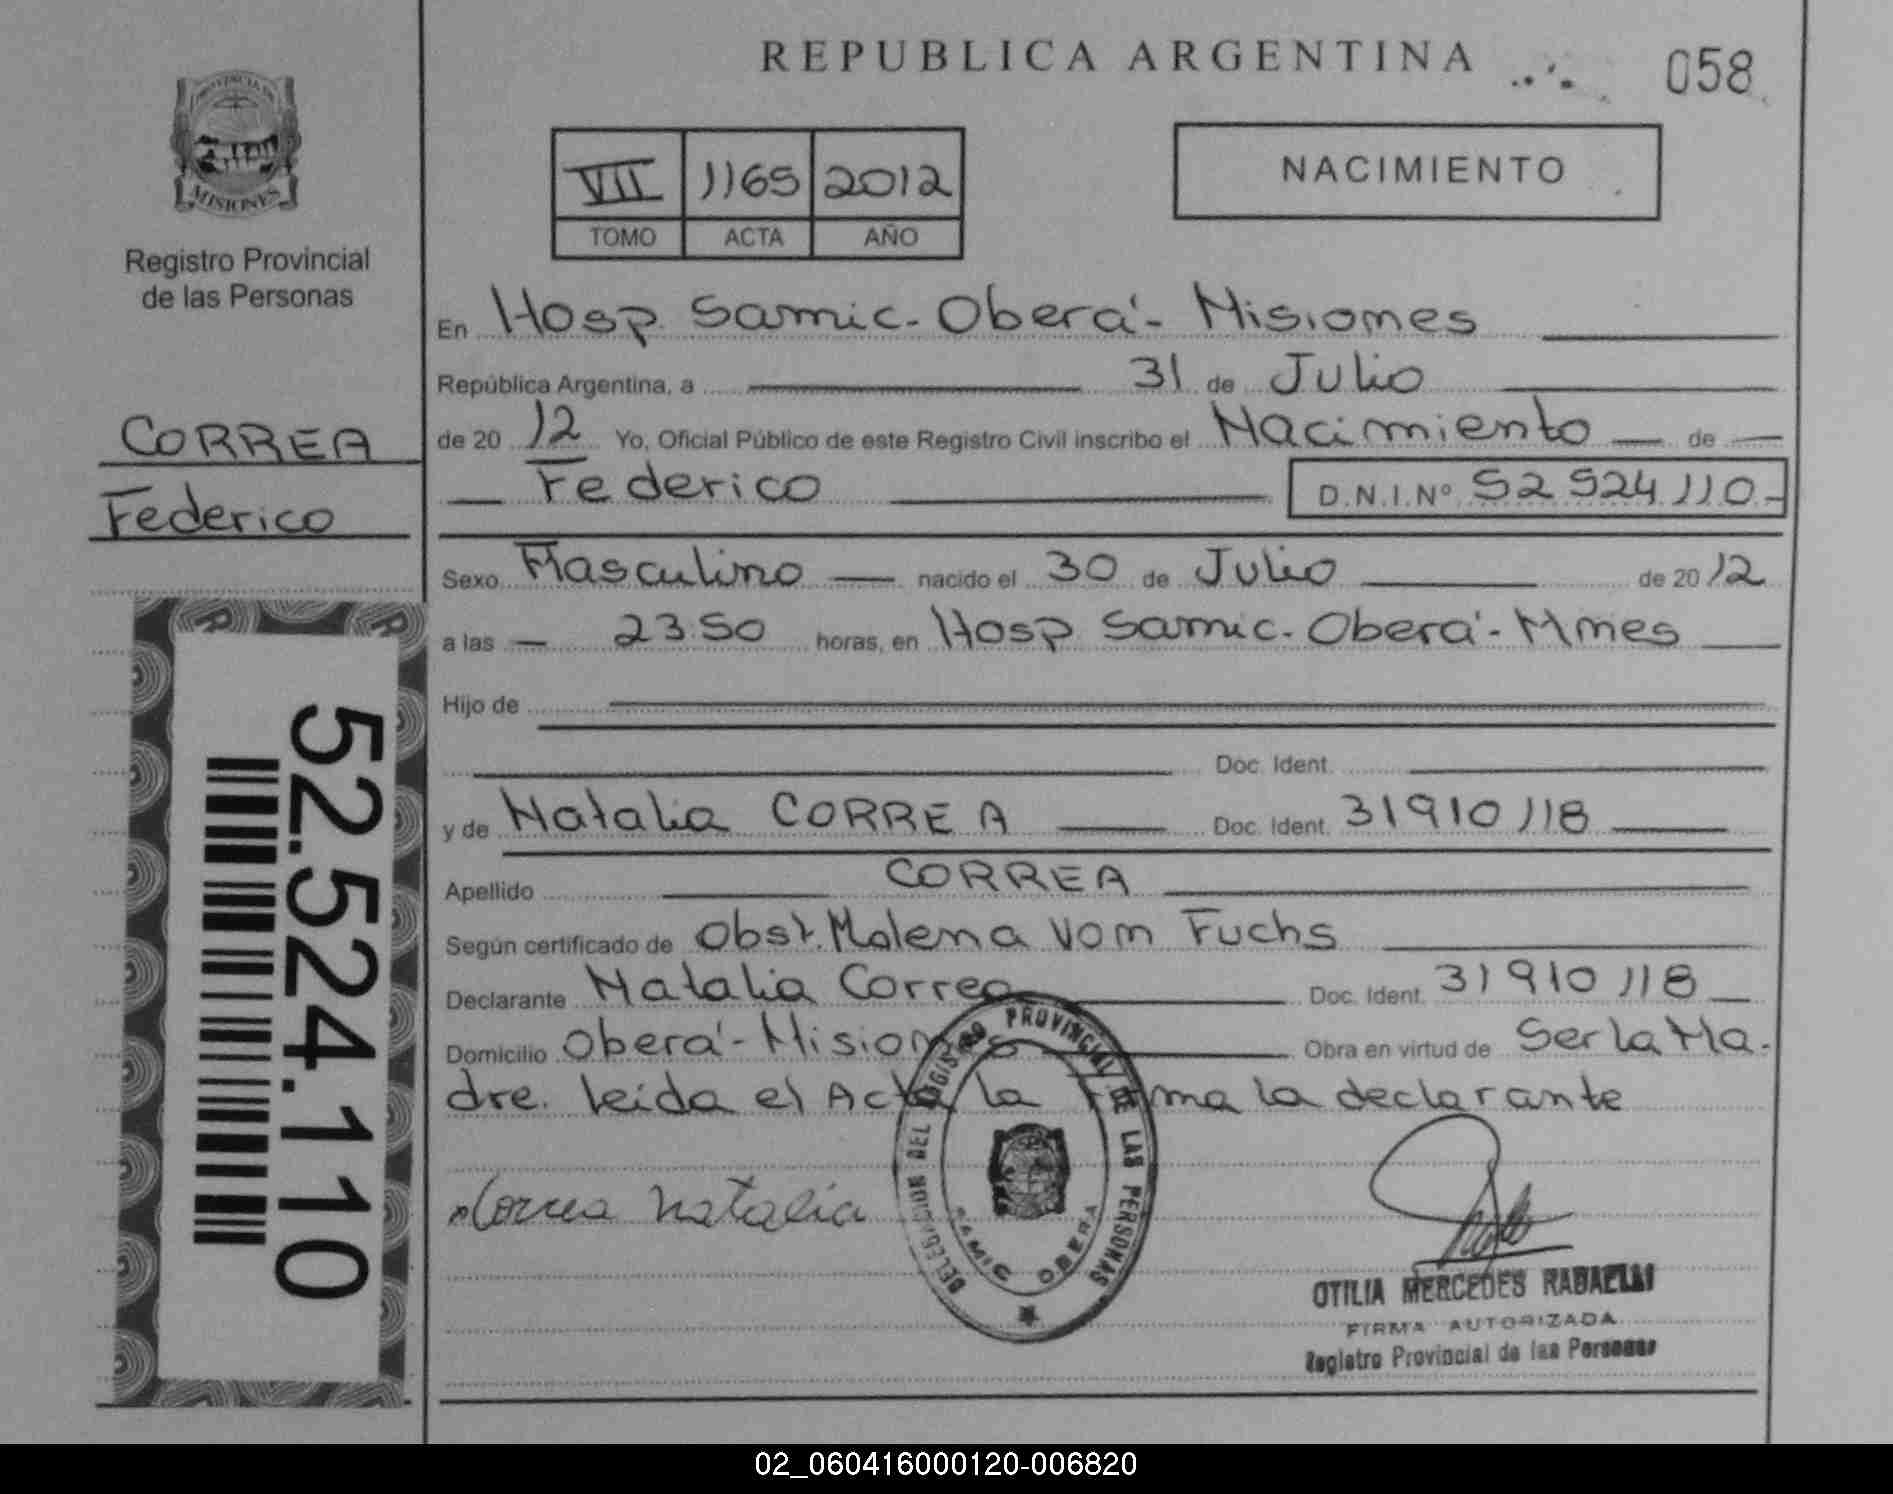 REPUBLICA ARGENTINA
058
PROVINCIA DE
MISIONES
Registro Provincial
de las Personas
VII 1165 2012
TOMO ACTA AÑO
NACIMIENTO
CORREA
Federico
52.524.110
En Hosp. Samic. Oberá - Misiones
República Argentina, a 31 de Julio
de 20 12 Yo, Oficial Público de este Registro Civil inscribo el Nacimiento de
Federico D.N.I.Nº 52 524 110.-
Sexo Masculino nacido el 30 de Julio de 20 12
a las 23.50 horas, en Hosp. Samic. Oberá - Mnes
Hijo de
Doc. Ident.
y de Natalia CORREA Doc. Ident. 31910118
Apellido CORREA
Según certificado de Obst. Malena Von Fuchs
Declarante Natalia Correa Doc. Ident. 31910118
Domicilio Oberá - Misiones Obra en virtud de Ser la Ma.
dre. leida el Acta la Firma la declarante
Correa Natalia
DELEGACION DEL REGISTRO PROVINCIAL DE LAS PERSONAS
SAMIC OBERA
OTILIA MERCEDES
FIRMA AUTORIZADA
Registro Provincial de las Personas
02_060416000120-006820